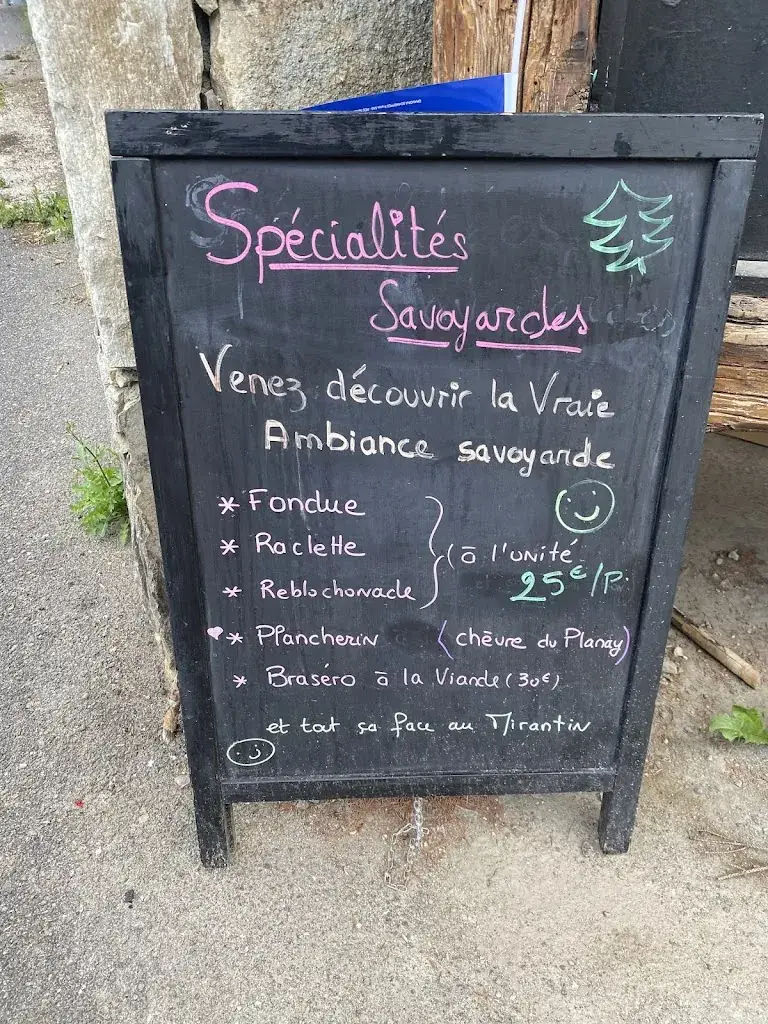 Spécialités
Savoyardes
Venez découvrir la Vraie
Ambiance savoyarde
* Fondue
* Raclette
* Reblochonade
} (à l'unité
25€/P.
* Plancherin (chèvre du Planay)
* Braséro à la Viande (30€)
et tout ça face au Mirantin